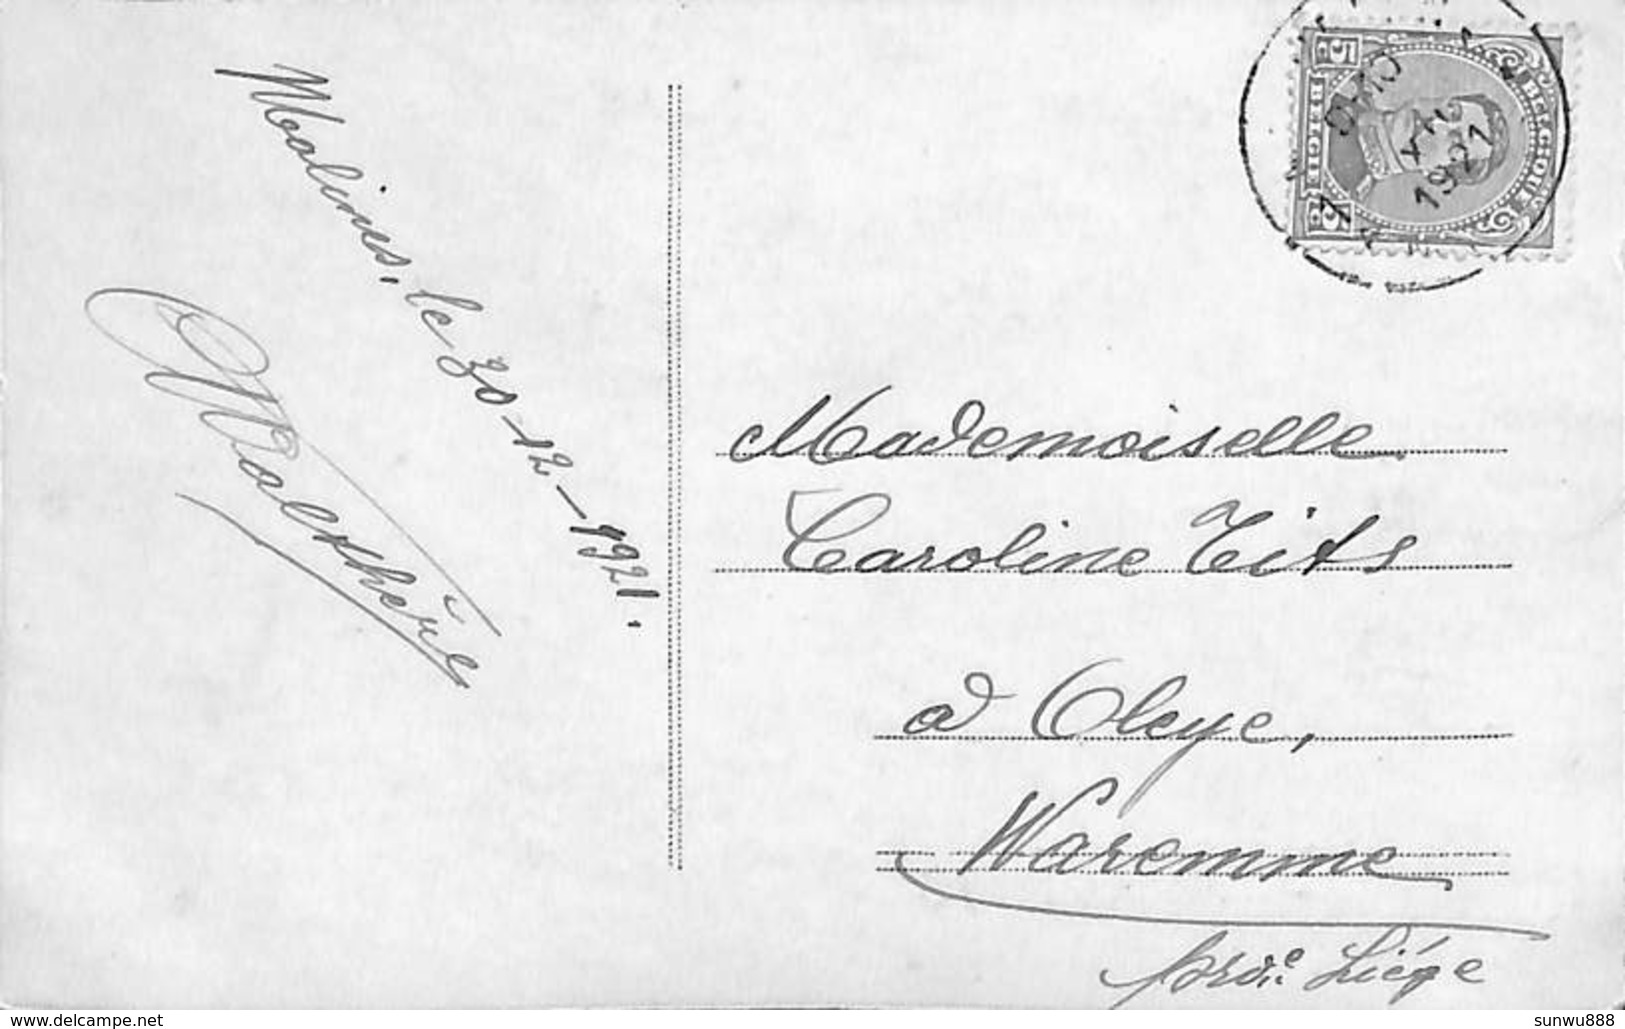 Malines, le 30-12-1921.
Malthère
Mademoiselle
Caroline Tits
à Oleye,
Waremme
provce Liége
5 BELGIË 5
BELGIQUE
XII
1921
delcampe.net
sunwu888